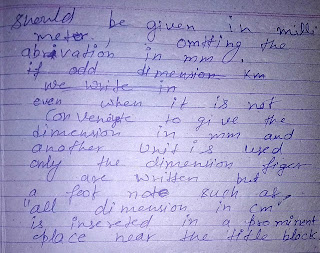 should be given in milli
meter, omiting the
abrivation in mm.
if odd dimension km
we write in
even when it is not
convenete to give the
dimension in mm and
another unit is used
only the dimension figer
are written but
a foot note such as,
"all dimension in cm"
is insereted in a prominent
place near the title block